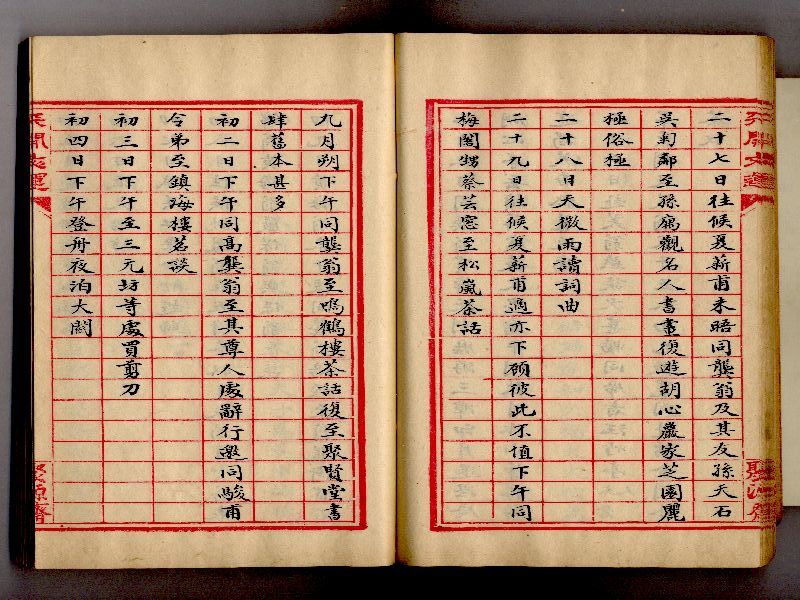 二十七日往候夏薪甫未晤同龔翁及其友孫天石
吳鄰至孫寓觀名人書畫復遊胡心嚴家芝園麗
極俗極
二十八日天微雨讀詞曲
二十九日往候夏薪甫適亦下顧彼此不值下午同
梅閣甥蔡芸窓至松嵐茶話
九月朔下午同龔翁至鳴鶴樓茶話復至聚賢堂書
肆舊本甚多
初二日下午同高龔翁至其尊人處辭行邀同駿甫
令弟至鎮海樓茗談
初三日下午至三元坊等處買剪刀
初四日下午登舟夜泊大關